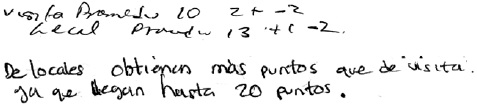 visita Promedio 10 2 + -2
Local Promedio 13 + -2.
De locales obtienen más puntos que de visita.
ya que llegan hasta 20 puntos.